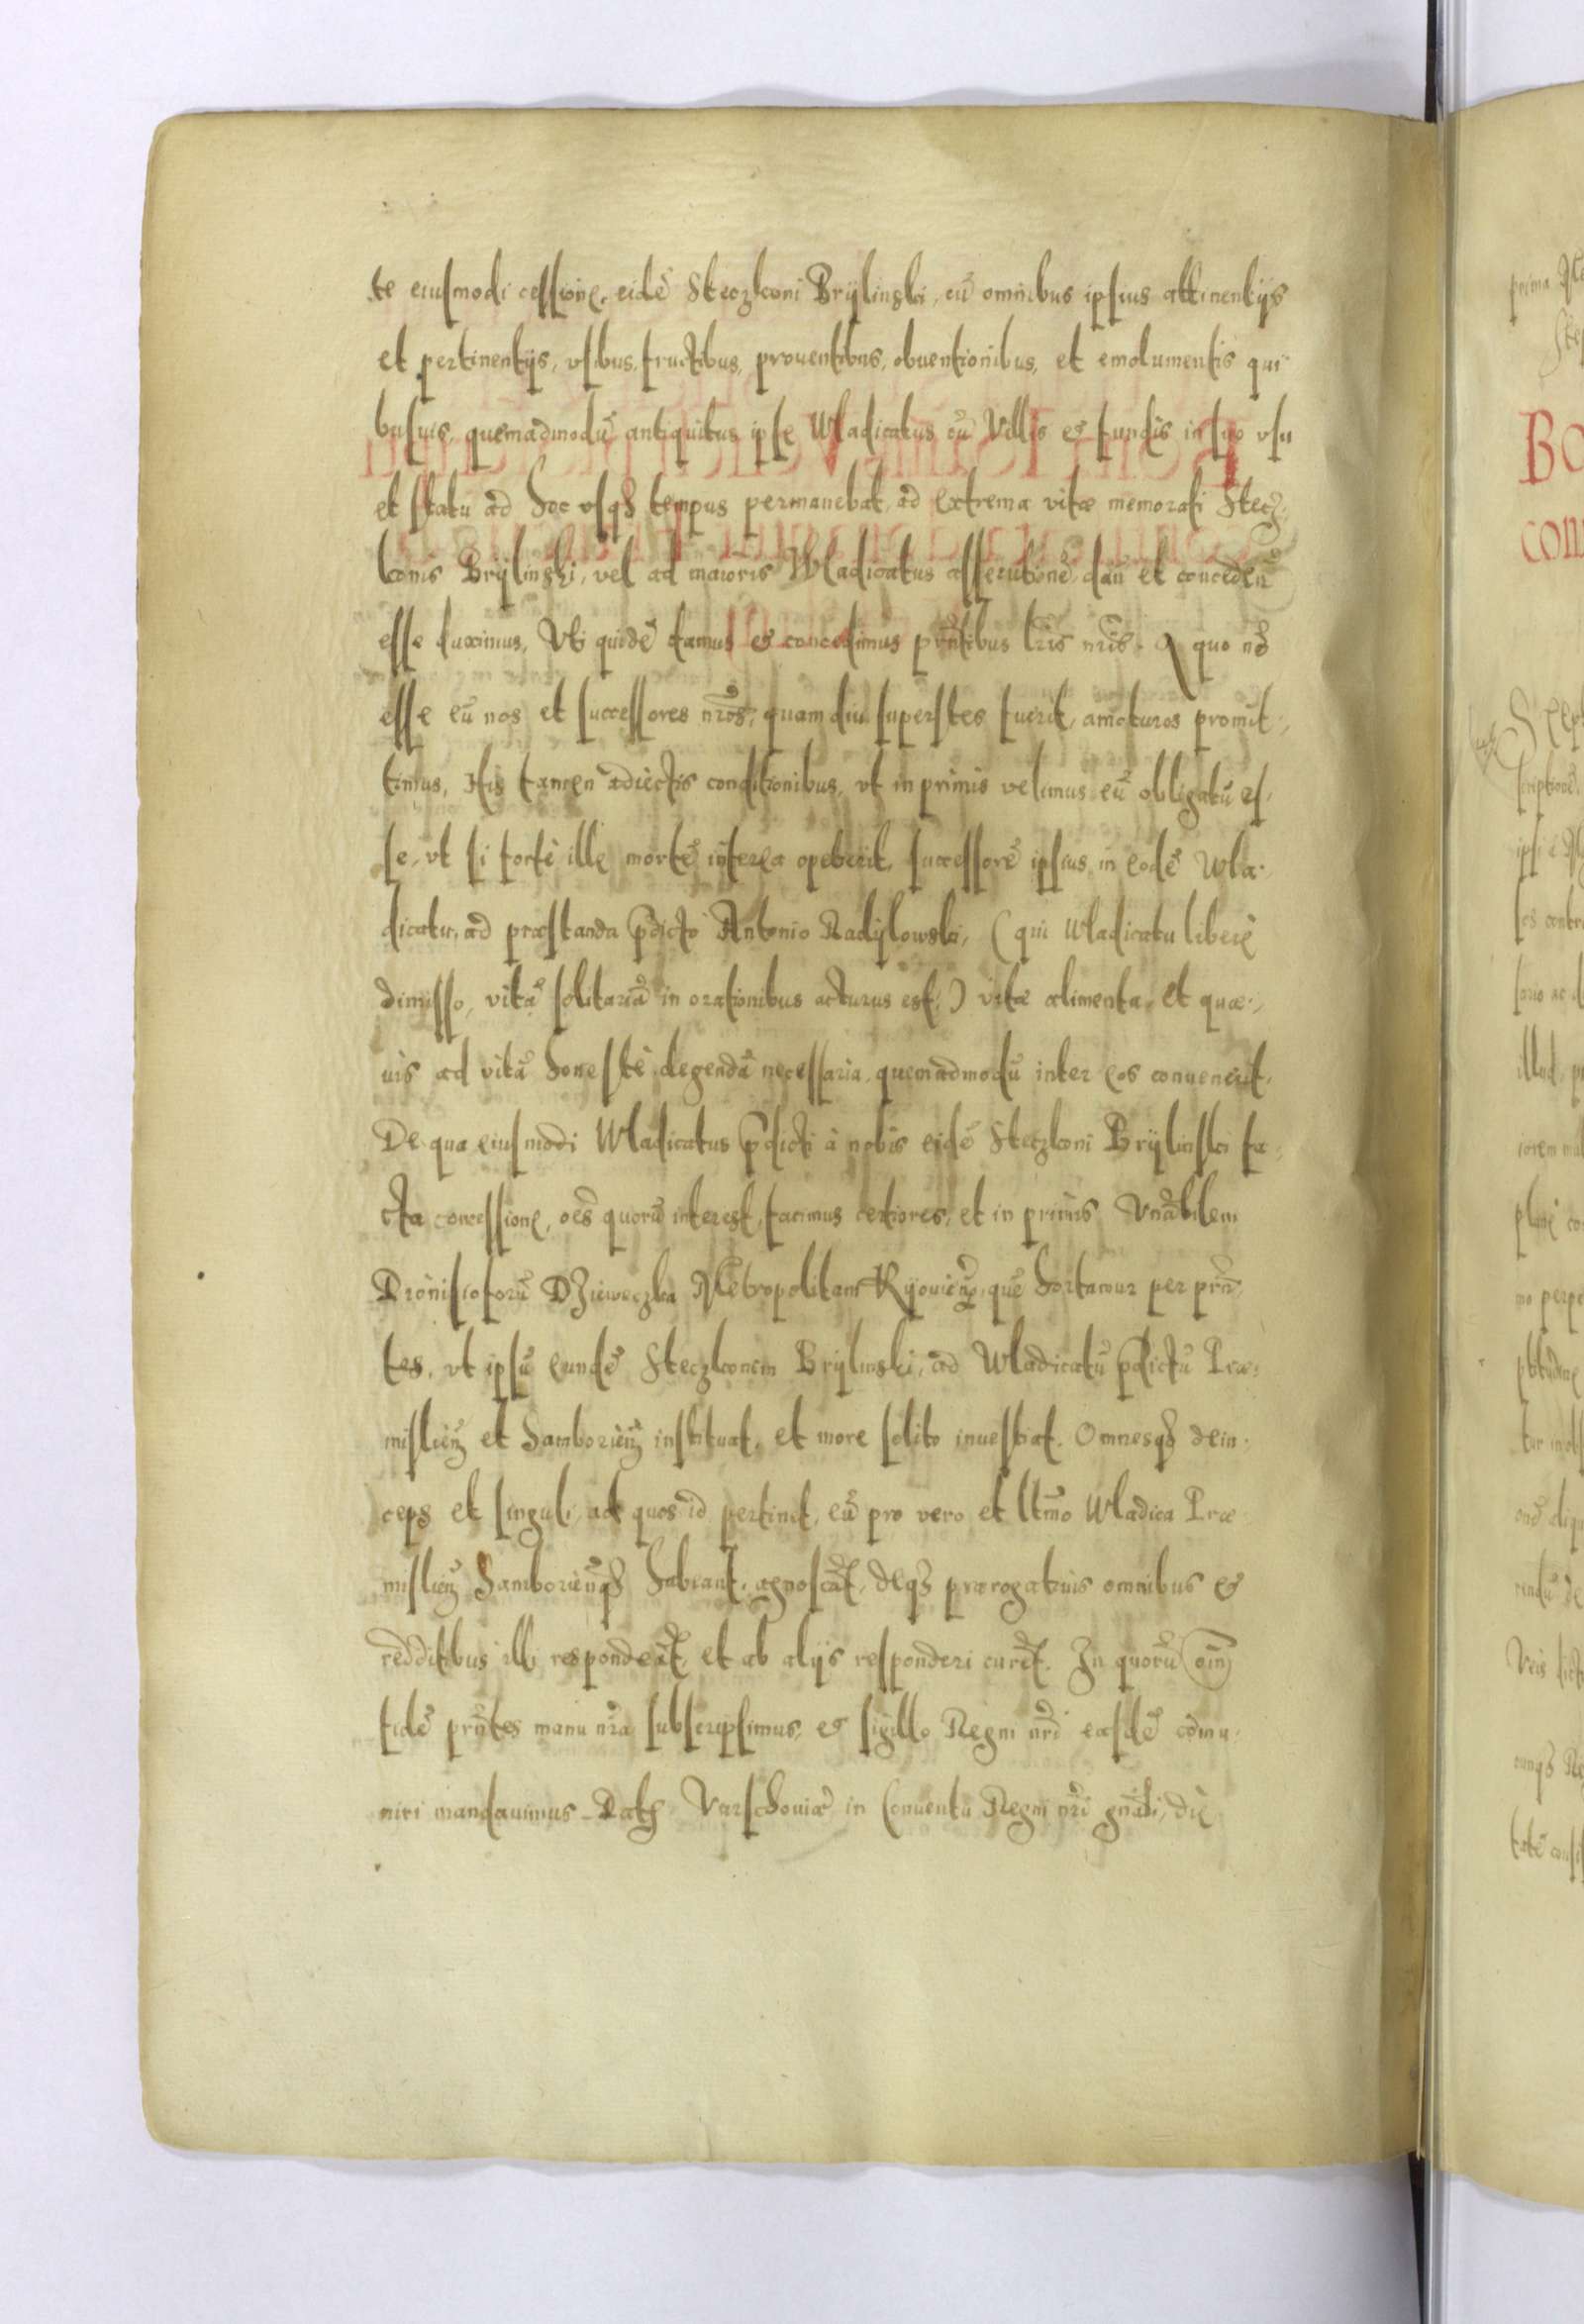 te eiusmodi cessione, eidē Steczkoni Brÿlinski, cū omnibus ipsius attinentijs
et pertinentijs, vsibus, fructibus, prouentibus, obuentionibus, et emolumentis qui
busuis, quemadmodū antiquitus ipse Wladicatus cū Villis et fundis in suo vsu
et statu ad hoc vsq3 tempus permanebat, ad extrema vitæ memorati Stecz
konis Brÿlinski, vel ad maioris Wladicatus assecutionē, dan̄ et conceden̄
esse duximus, Vti quidē damus et concedimus pn̄tibus lr̄is nr̄is. A quo nō
esse eū nos et successores nr̄os, quamdiu superstes fuerit, amoturos promit
timus, His tamen adiectis conditionibus, vt in primis velimus eū obligatū es
se, vt si fortè ille mortē interea opetierit, successorē ipsius in eodē Wla
dicatu, ad præstanda p̄dicto Antonio Radÿlowski, (qui Wladicatu liberè
dimisso, vitā solitariā in orationibus acturus est,) vitæ alimenta, et quæ
uis ad vitā honestè degendā necessaria, quemadmodū inter eos conuenerit.
De qua eiusmodi Wladicatus p̄dicti à nobis eidē Steczkoni Brÿlinski fa
cta concessione, oēs quorū interest, facimus certiores, et in primis Vnr̄abilem
Dionisioforū DZieweczka Metropolitam Kÿouien̄, quē hortamur per pn̄
tes, vt ipsū eundē Steczkonem Brÿlinski, ad Wladicatū p̄dictū Præ
mislien̄ et Samborien̄ instituat, et more solito inuestiat. Omnesq3 dein
ceps et singuli, ad quos id pertinet, eū pro vero et ltm̄o Wladica Præ
mislien̄ Samborien̄q3 habeant, agnoscāt, deq3 prærogatiuis omnibus et
redditibus illi respondeāt, et ab alijs responderi curēt. In quorū om̄
fidē pn̄tes manu nr̄a subscripsimus, et sigillo Regni nr̄i easdē cōmu
niri mandauimus. Dat̄ Varschouiæ in Conuentu Regni nr̄i gnāli, die